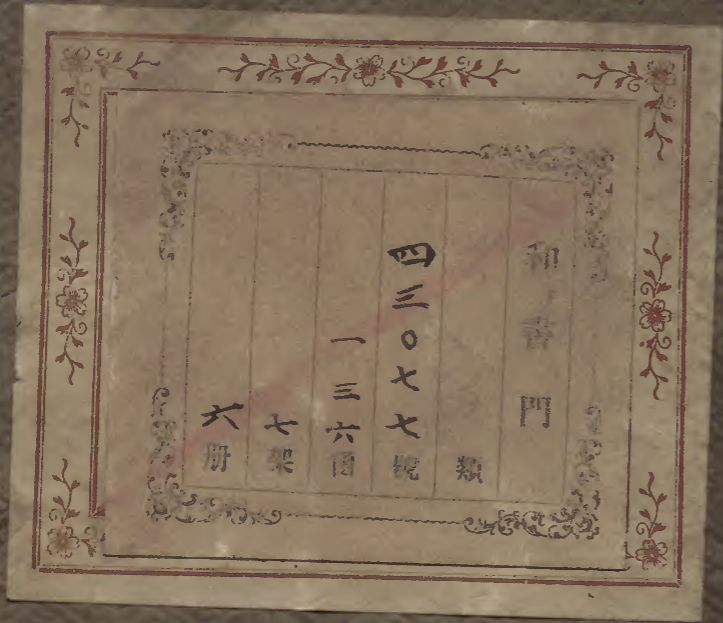 和書門
類
四三〇七七號
一三六函
七架
六册